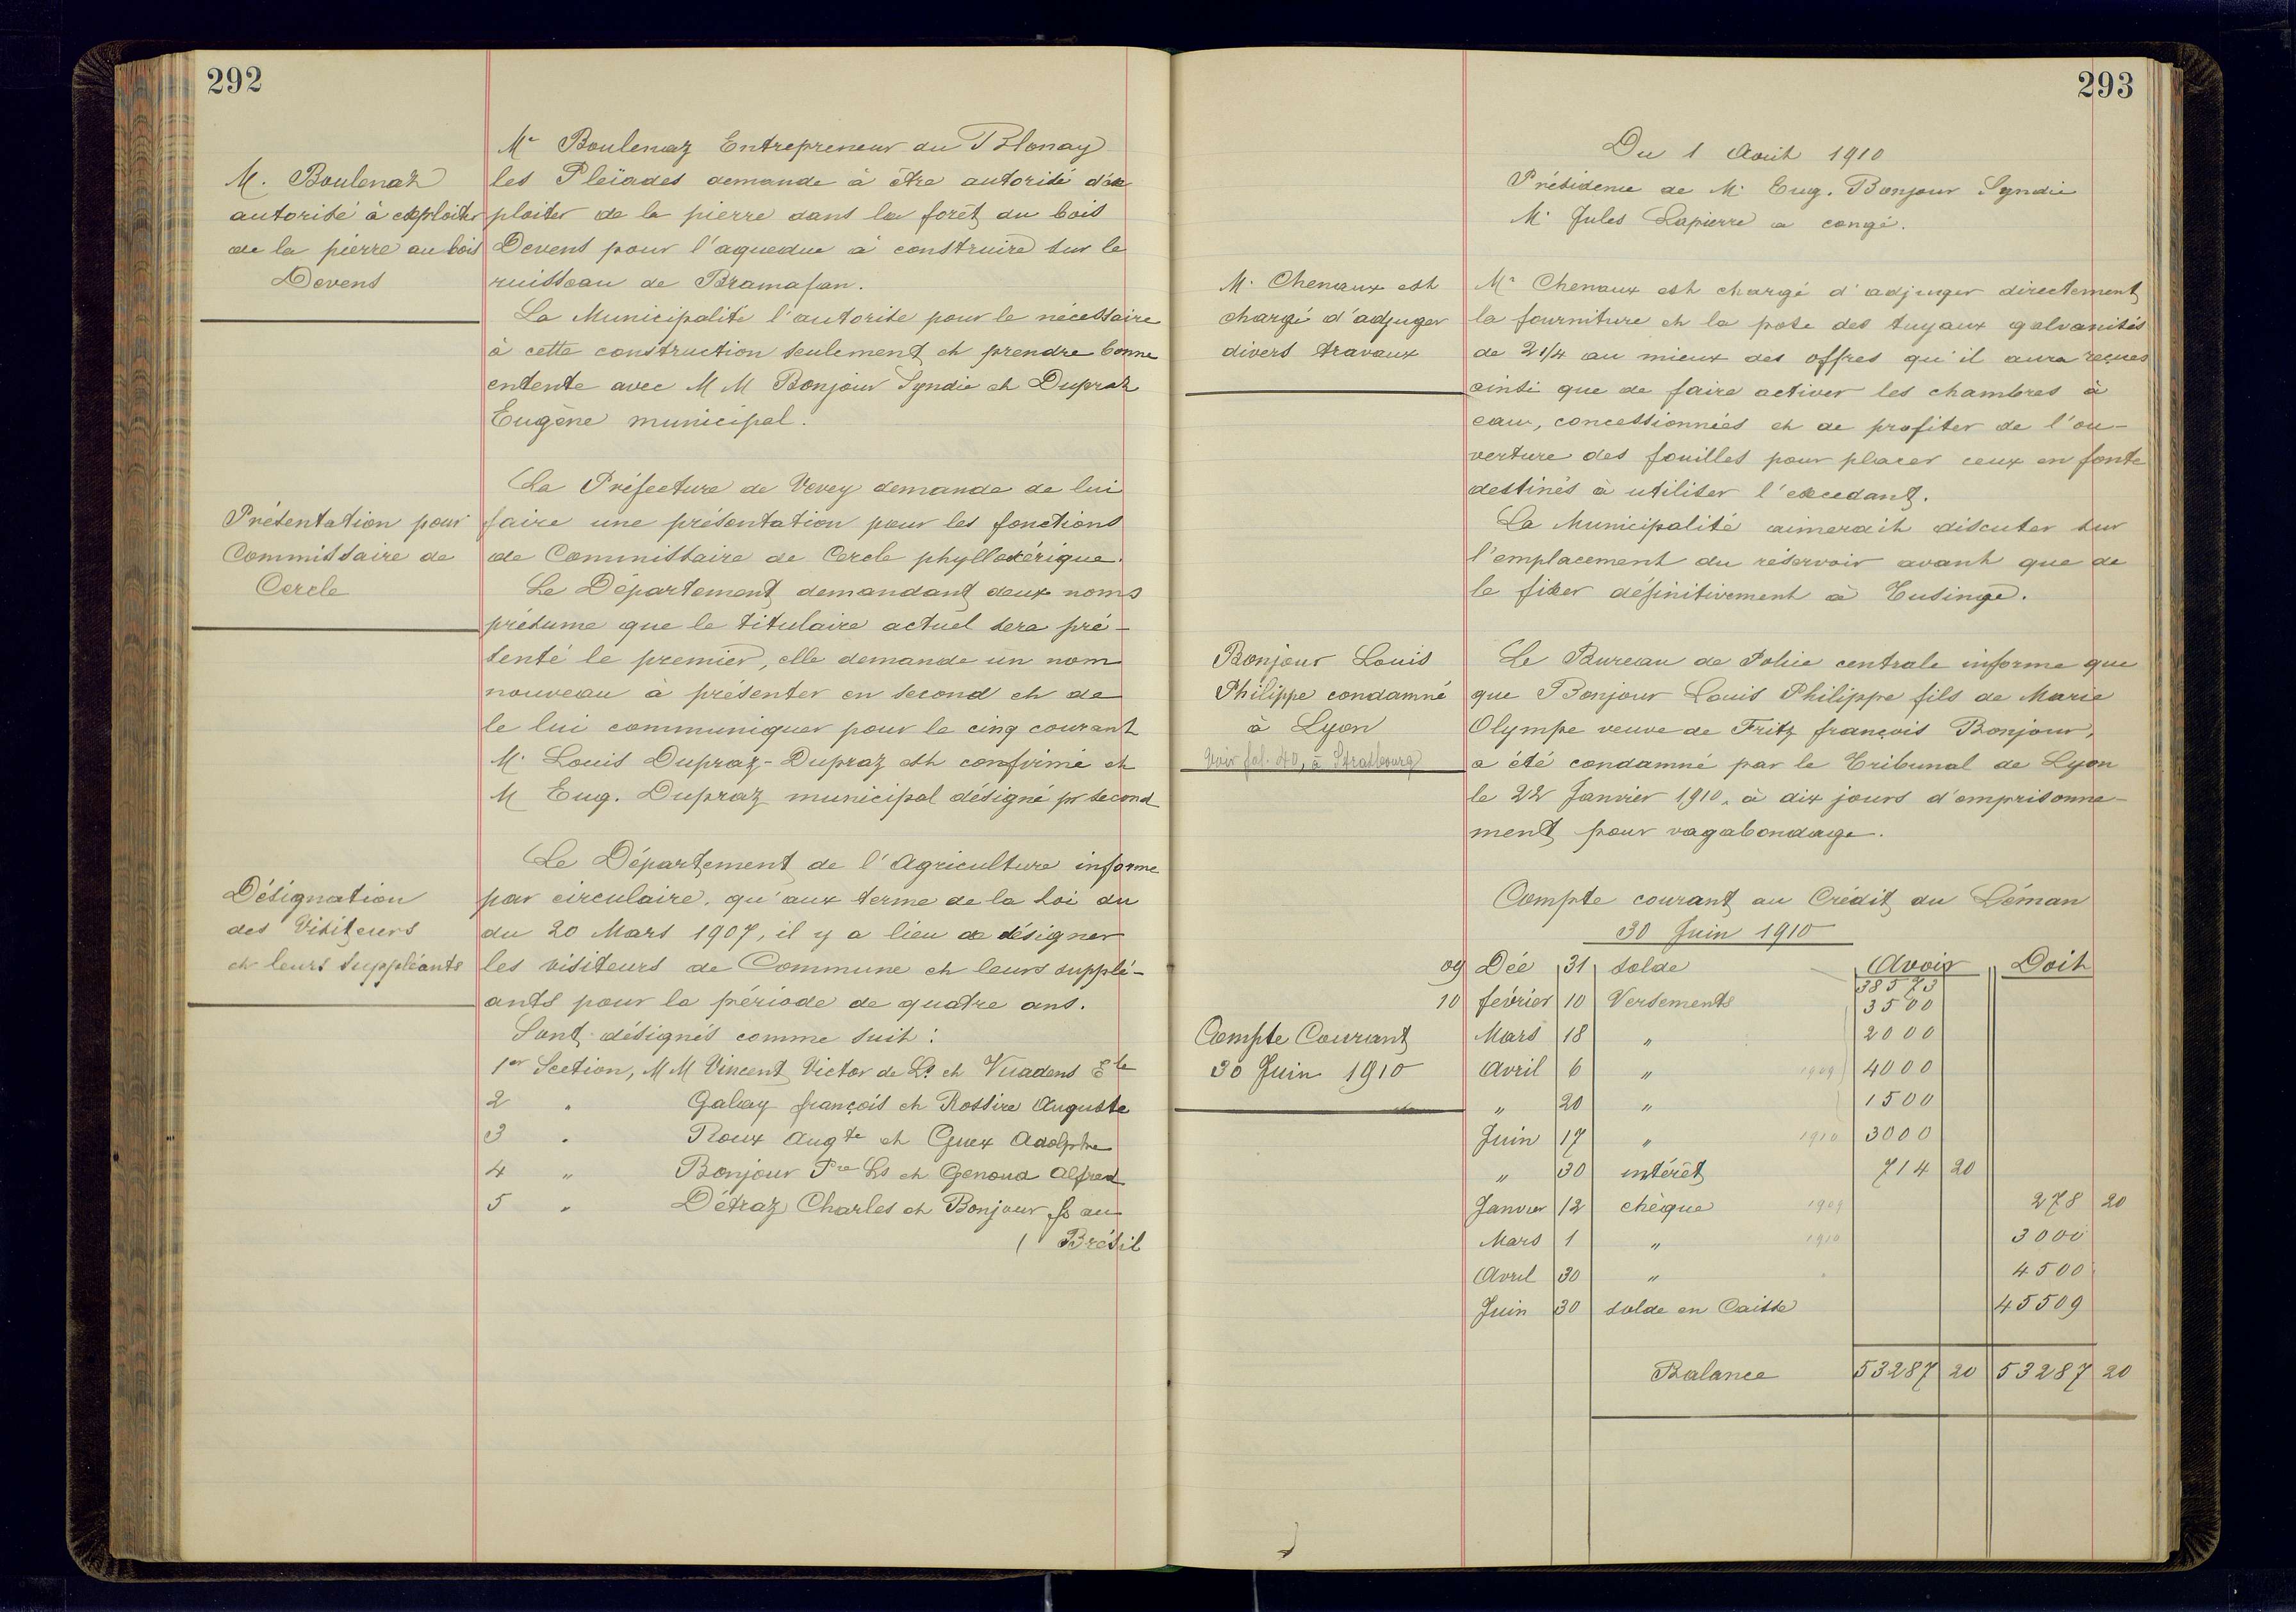 292
Mr Boulenaz Entrepreneur du Blonay
les Pleïades demande à être autorisé d'ex
ploiter de la pierre dans la forêt du bois
Devens pour l'aqueduc à construire sur le
ruisseau de Bramafan.
La Municipalité l'autorise pour le nécessaire
à cette construction seulement et prendre bonne
entente avec M M Bonjour Syndic et Dupraz
Eugène municipal.
M. Boulenaz
autorisé à exploiter
de la pierre au bois
Devens
La Préfecture de Vevey demande de lui
faire une présentation pour les fonctions
de Commissaire de Cercle phylloxérique.
Le Département demandant deux noms
présume que le titulaire actuel sera pré-
senté le premier, elle demande un nom
nouveau à présenter en second et de
le lui communiquer pour le cinq courant
M. Louis Dupraz-Dupraz est confirmé et
M Eug. Dupraz municipal désigné pr second
Présentation pour
Commissaire de
Cercle
Le Département de l'Agriculture informe
par circulaire, qu'aux terme de la Loi du
du 20 Mars 1907, il y a lieu de désigner
les visiteurs de Commune et leurs supplé-
ants pour la période de quatre ans.
Sont désignés comme suit :
1er Section, M M Vincent Victor de Ls et Vuadens Ele
2 " Gabay françois et Rossire Auguste
3 " Roux Augte et Guex Adolphe
4 " Bonjour Pre Ls et Genoud Alfred
5 " Détraz Charles et Bonjour fs au
( Brésil
Désignation
des Visiteurs
et leurs suppléants
293
Du 1 Août 1910
Présidence de M. Eug. Bonjour Syndic
M. Jules Lapierre a congé.
M. Chenaux est
chargé d'adjuger
divers travaux
Mr Chenaux est chargé d'adjuger directement
la fourniture et la pose des tuyaux galvanisés
de 2 1/4 au mieux des offres qu'il aura reçues
ainsi que de faire activer les chambres à
eau, concessionnées et de profiter de l'ou-
verture des fouilles pour placer ceux en fonte
destinés à utiliser l'excedant.
La Municipalité aimerait discuter sur
l'emplacement du réservoir avant que de
le fixer définitivement à Tusinge.
Bonjour Louis
Philippe condamné
à Lyon
Voir fol. 40, à Strasbourg
Le Bureau de Police centrale informe que
que Bonjour Louis Philippe fils de Marie
Olympe veuve de Fritz françois Bonjour,
a été condamné par le Tribunal de Lyon
le 22 Janvier 1910, à dix jours d'emprisonne-
ment pour vagabondage.
Compte Courant
30 Juin 1910
Compte courant au Crédit du Léman
30 Juin 1910
Avoir Doit
09 Déc 31 solde 38573
10 février 10 Versements 3500
Mars 18 " 2000
Avril 6 " 1909 4000
" 20 " 1500
Juin 17 " 1910 3000
" 30 intérêt 714 20
Janvier 12 chèque 1909 278 20
Mars 1 " 1910 3000
Avril 30 " 4500
Juin 30 solde en Caisse 45509
Balance 53287 20 53287 20